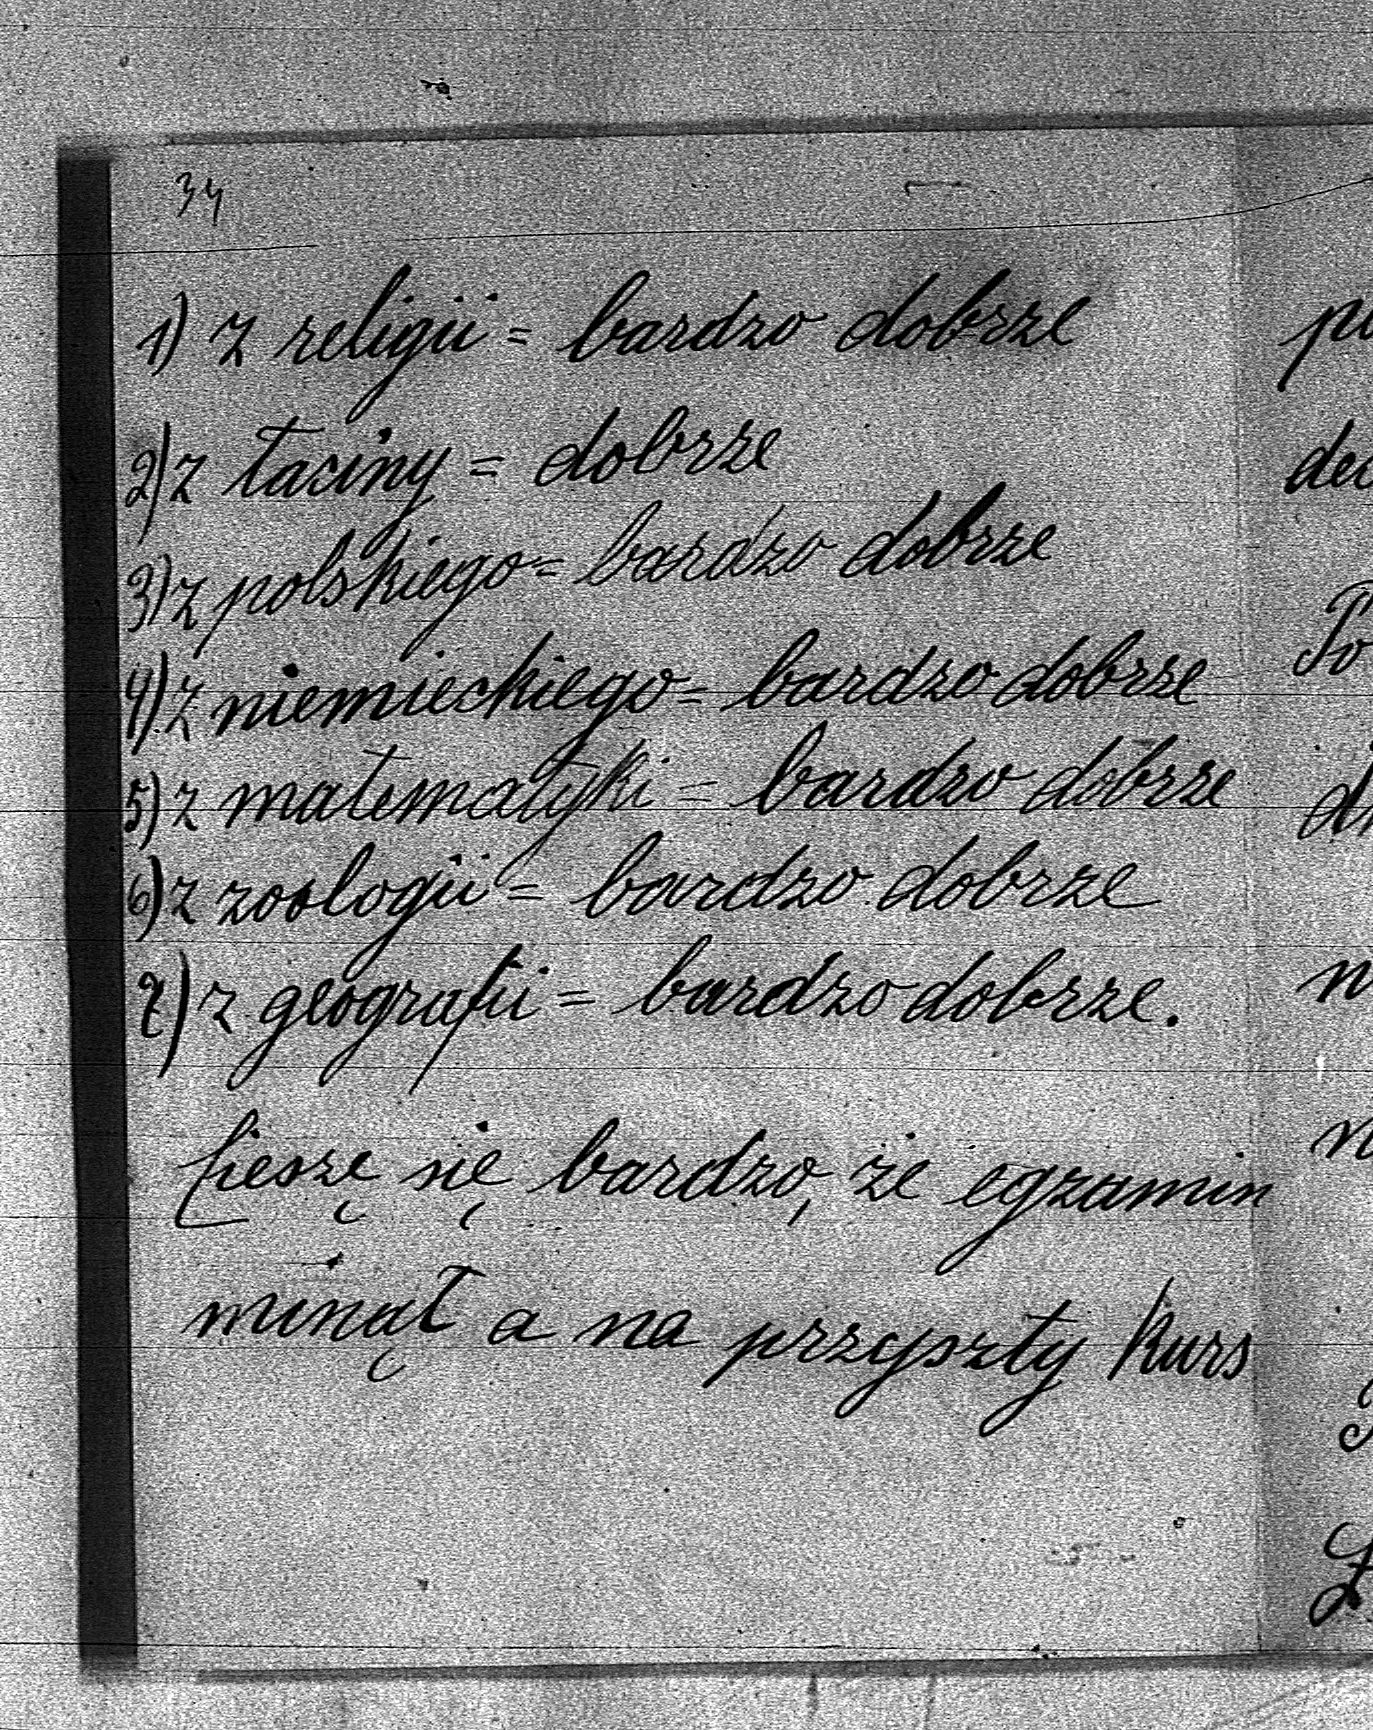 34
1) z religii = bardzo dobrze
2) z łaciny = dobrze
3) z polskiego = bardzo dobrze
4) z niemieckiego = bardzo dobrze
5) z matematyki = bardzo dobrze
6) z zoologii = bardzo dobrze
7) z geografii = bardzo dobrze.
Cieszę się bardzo, że egzamin
minął a na przyszły kurs